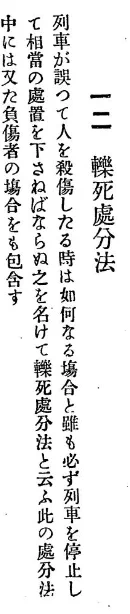 一二　轢死處分法
列車が誤つて人を殺傷したる時は如何なる塲合と雖も必ず列車を停止し
て相當の處置を下さねばならぬ之を名けて轢死處分法と云ふ此の處分法
中には又た負傷者の塲合をも包含す